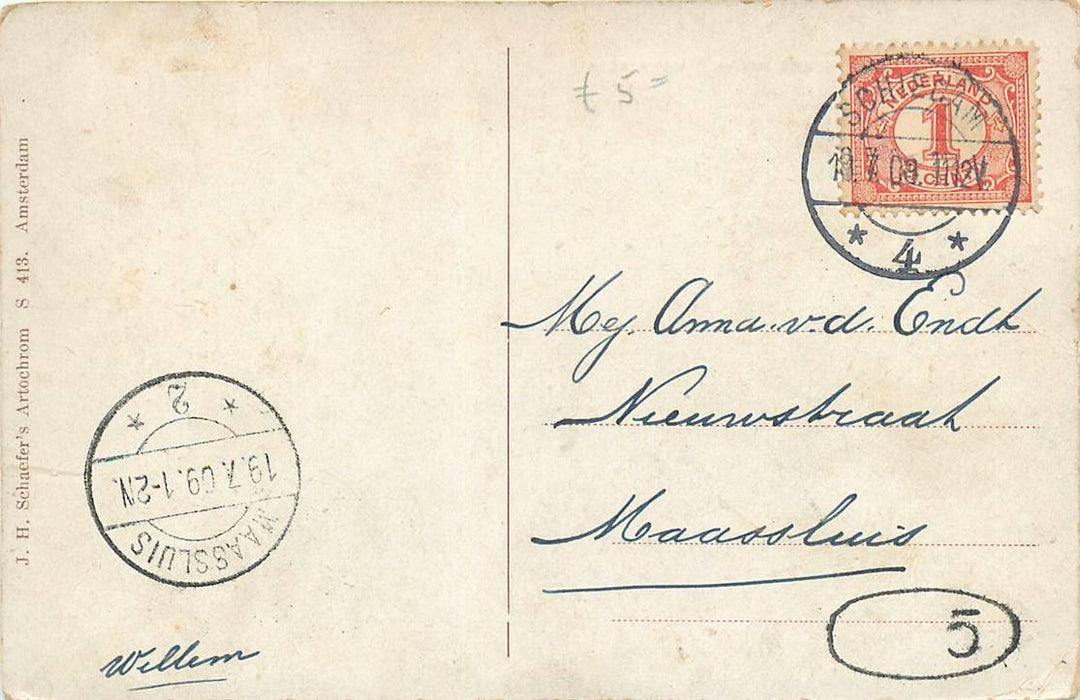 J. H. Schaefer's Artochrom S 413. Amsterdam
5=
NEDERLAND
1
CENT
SCHIEDAM
19.7.09. 11-12V
* 4 *
Mej. Anna. v. d. Endt
Nieuwstraat
Maassluis
5
* 2 *
19.7.09.1-2N.
MAASSLUIS
Willem